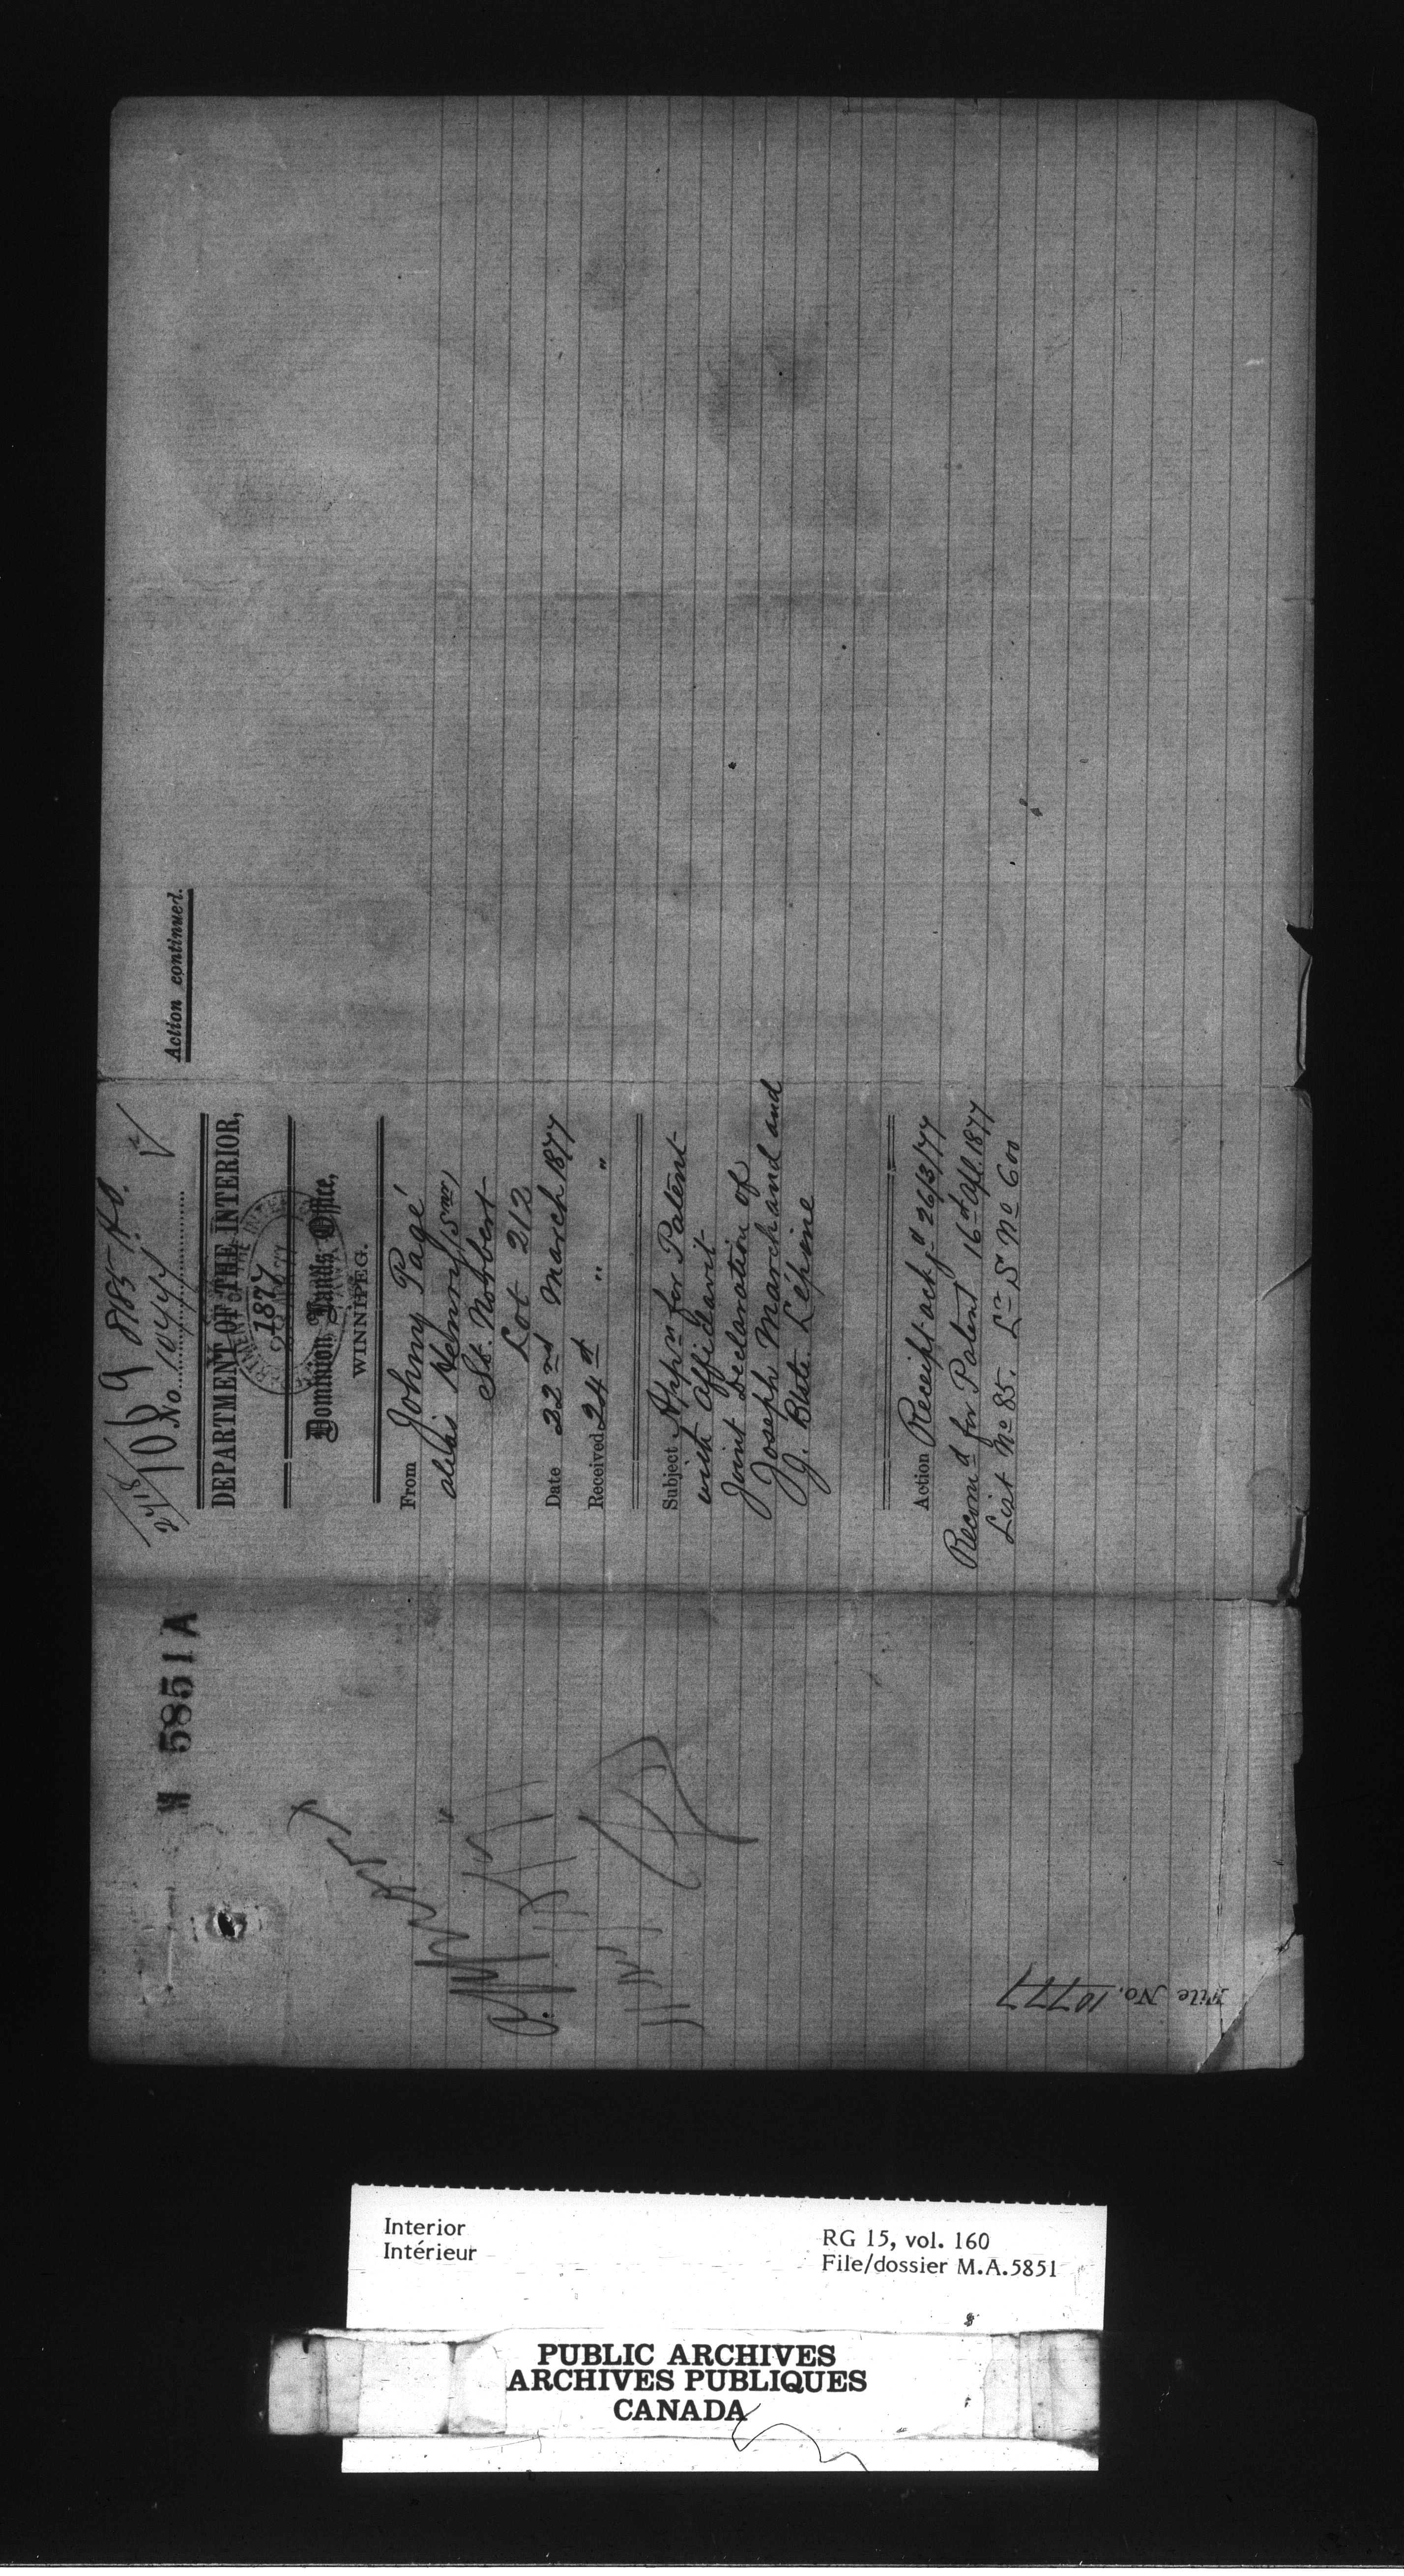 M 5851 A
1069 8185 H.O.
No. 10444
DEPARTMENT OF THE INTERIOR,
1877
Dominion Lands Office,
WINNIPEG.
From Johny Pagé
alias Henry, Snr,
St. Norbert
Lot 212
Date 22nd March 1877
Received 24th " "
Subject Appn for Patent
with Affidavit
Joint Declaration of
Joseph Marchand and
J. Bste. Lépine
Action Receipt ackgd 26/3/77
Recomd for Patent 16th Apl. 1877
List No 85. Lr S No 600
Action continued.
File No. 10777
Interior
Intérieur
RG 15, vol. 160
File/dossier M.A.5851
PUBLIC ARCHIVES
ARCHIVES PUBLIQUES
CANADA